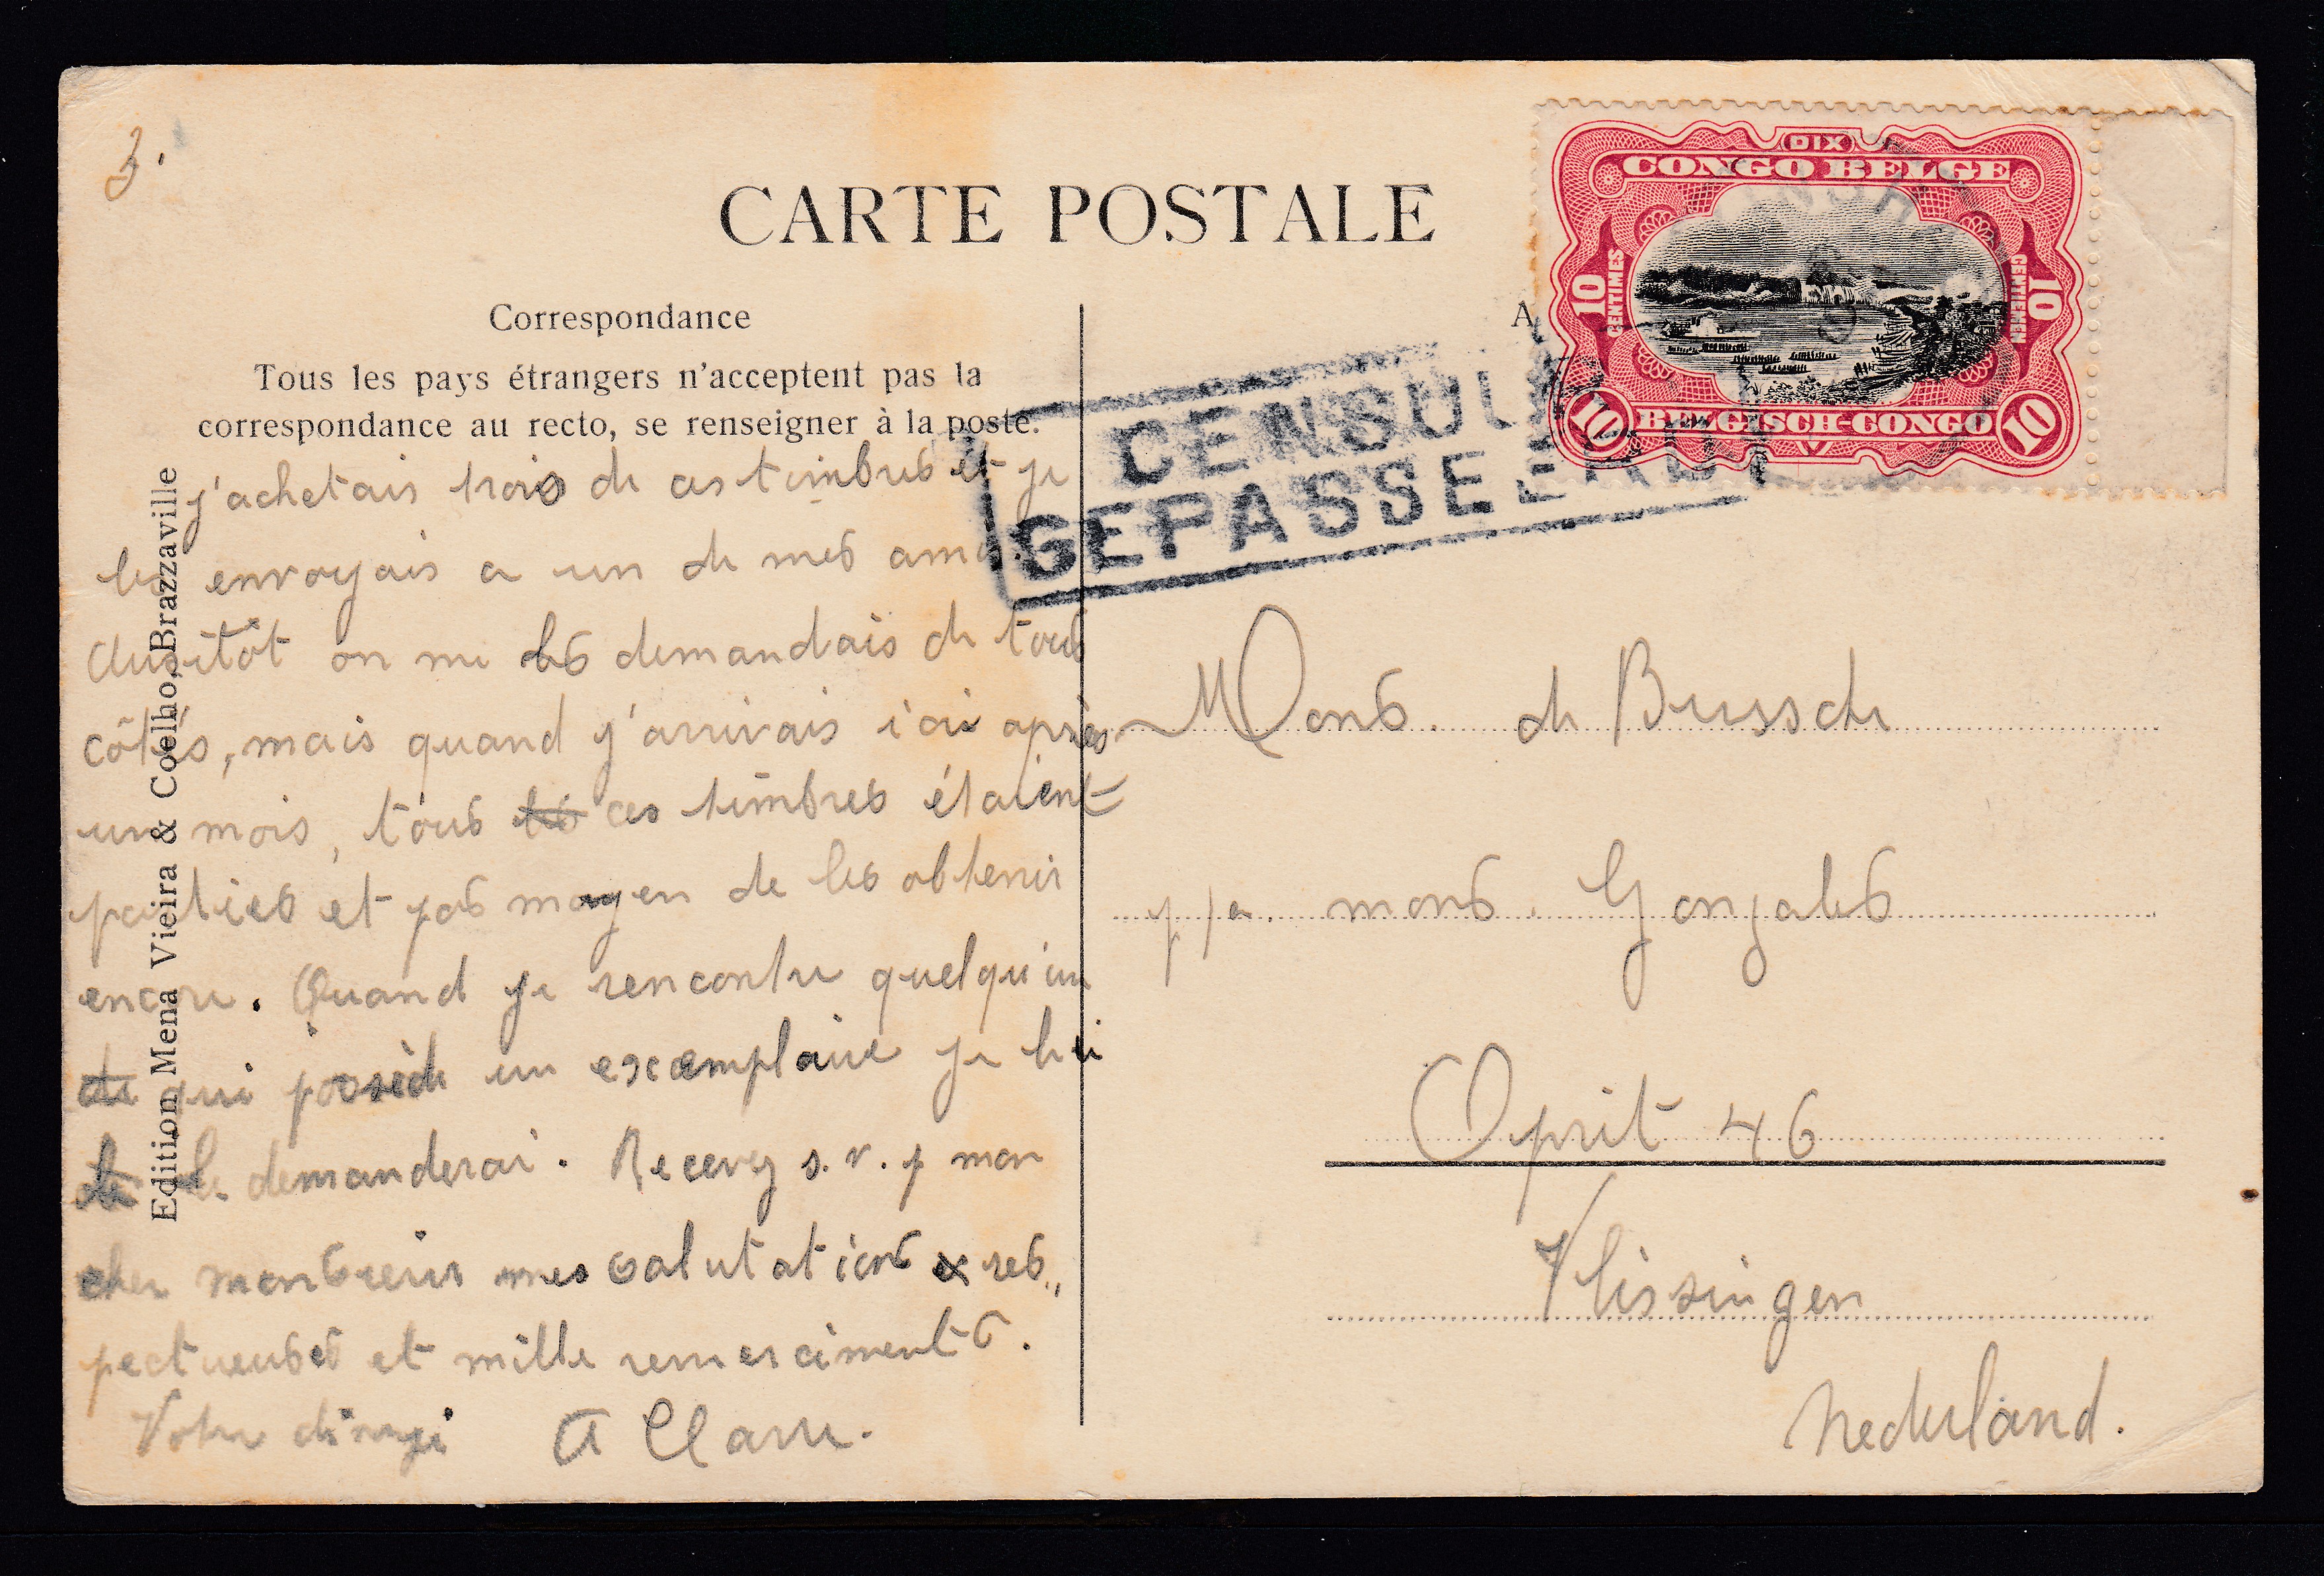 3.
CARTE POSTALE
Correspondance
Tous les pays étrangers n'acceptent pas la
correspondance au recto, se renseigner à la poste.
j'achetais trois de ces timbres et je
les envoyais a un de mes amis.
Aussitôt on me les demandais de tous
côtés, mais quand j'arrivais ici après
un mois, tous les ces timbres étaient
parties et pas moyen de les obtenir
encore. Quand je rencontre quelqu'un
qui possède un excemplaire je lui
le demanderai. Recevez s.v.p mon
cher monsieur mes salutations res„
pectueuses et mille remerciments.
Votre A Claru.
Edition Mena Vieira & Coelho, Brazzaville
A
DIX
CONGO BELGE
10 CENTIMES
10 CENTIEMEN
10 BELGISCH-CONGO 10
CENSUUR
GEPASSEERD
Mons. de Bussche
p/a. mons. Gonzales
Oprit 46
Vlissingen
Nederland.